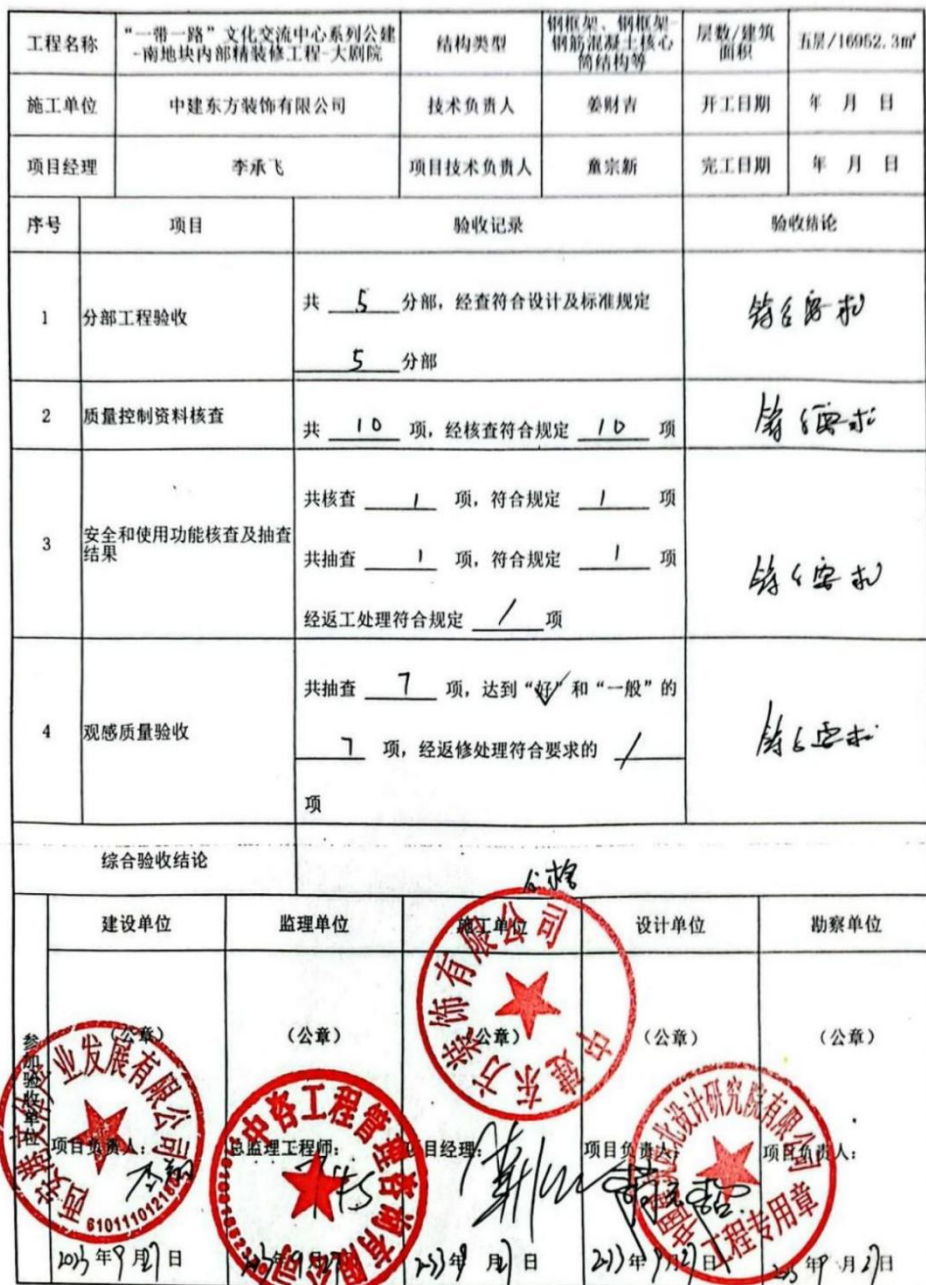 工程名称 “一带一路”文化交流中心系列公建-南地块内部精装修工程-大剧院 结构类型 钢框架、钢框架-钢筋混凝土核心筒结构等 层数/建筑面积 五层/16952.3㎡
施工单位 中建东方装饰有限公司 技术负责人 姜财吉 开工日期 年 月 日
项目经理 李承飞 项目技术负责人 童宗新 完工日期 年 月 日
序号 项目 验收记录 验收结论
1 分部工程验收 共 5 分部，经查符合设计及标准规定 符合要求
5 分部
2 质量控制资料核查 共 10 项，经核查符合规定 10 项 符合要求
3 安全和使用功能核查及抽查结果 共核查 1 项，符合规定 1 项
共抽查 1 项，符合规定 1 项 符合要求
经返工处理符合规定 / 项
4 观感质量验收 共抽查 7 项，达到“好”和“一般”的 符合要求
7 项，经返修处理符合要求的 /
项
综合验收结论 合格
参加验收单位 建设单位 监理单位 施工单位 设计单位 勘察单位
（公章） （公章） （公章） （公章） （公章）
项目负责人： 总监理工程师： 项目经理： 项目负责人： 项目负责人：
2023年9月27日 年9月27日 2023年9月27日 2023年9月27日 年9月27日
业发展有限公司
中咨工程管理咨询有限公司
中建东方装饰有限公司
文化设计研究院有限公司
工程专用章